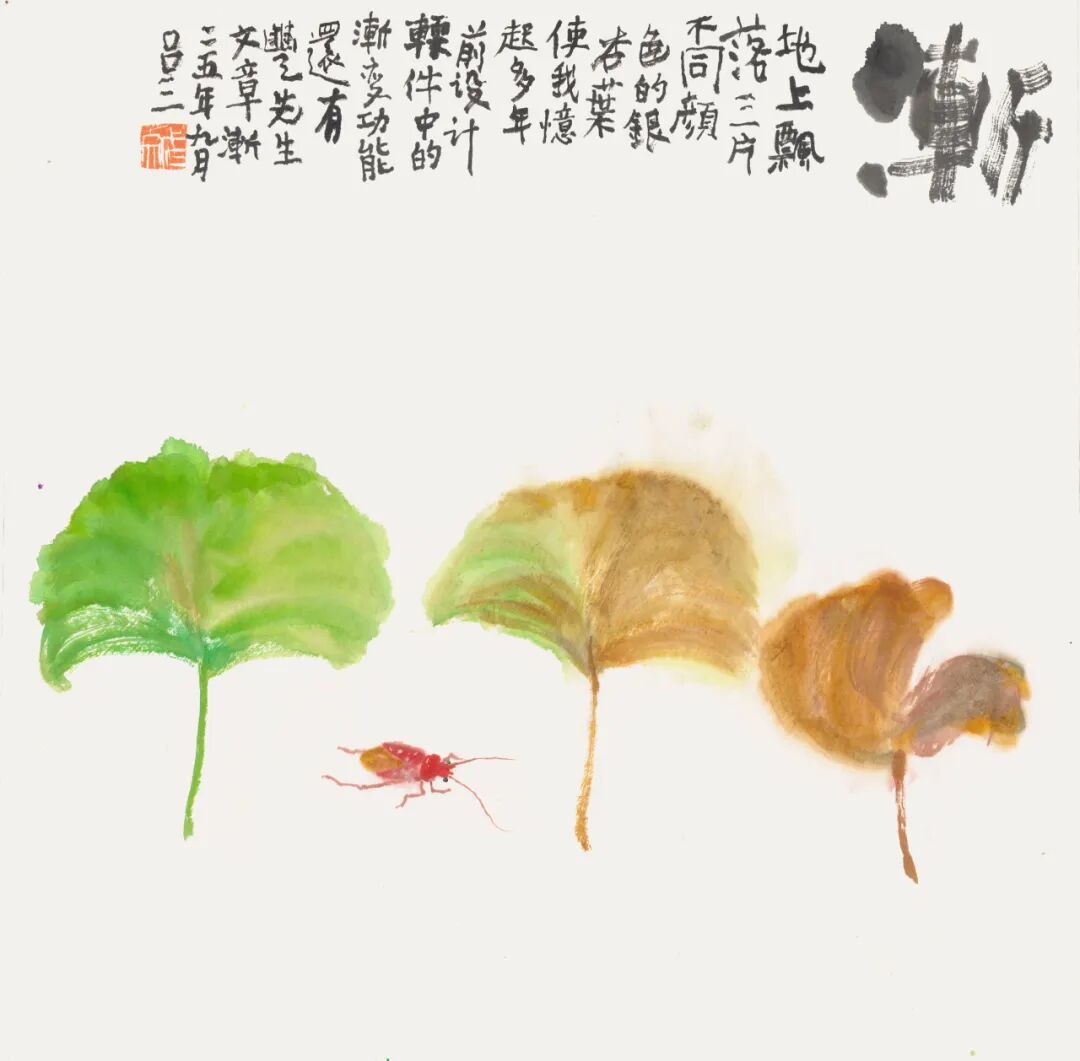 漸
地上飄
落三片
不同顏
色的銀
杏葉
使我憶
起多年
前设计
軟件中的
漸变功能
還有
先生
文章漸
二五年九月
吕二